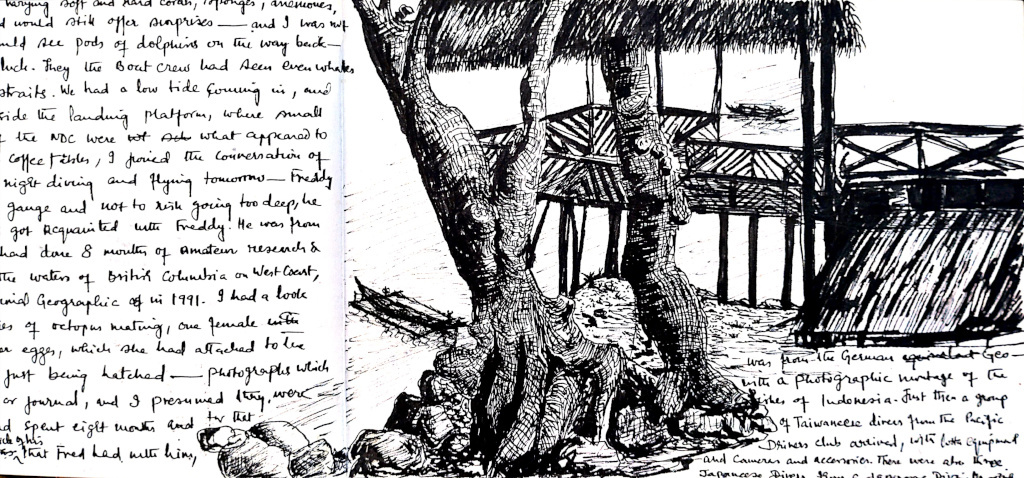 varying soft and hard corals, sponges, anemones,
would still offer surprises — and I was not
see pods of dolphins on the way back —
luck. They the Boat crew had seen even whales
straits. We had a low tide coming in, and
side the landing platform, where small
the NDC were what appeared to
coffee tables, I joined the conversation of
night diving and flying tomorrow — Freddy
gauge and not to risk going too deep, he
got acquainted with Freddy. He was from
had done 8 months of Amateur research &
the waters of British Columbia on West Coast,
Geographic in 1991. I had a look
of octopus mating, one female with
eggs, which she had attached to the
just being hatched — photographs which
or journal, and I presumed they were
spent eight months and for that
that Fred had with him,
was from the German equivalent Geo —
with a photographic montage of the
of Indonesia. Just then a group
of Taiwanese divers from the Pacific
Divers club arrived, with lots equipment
and cameras and accessories. There were also three
Japanese Divers